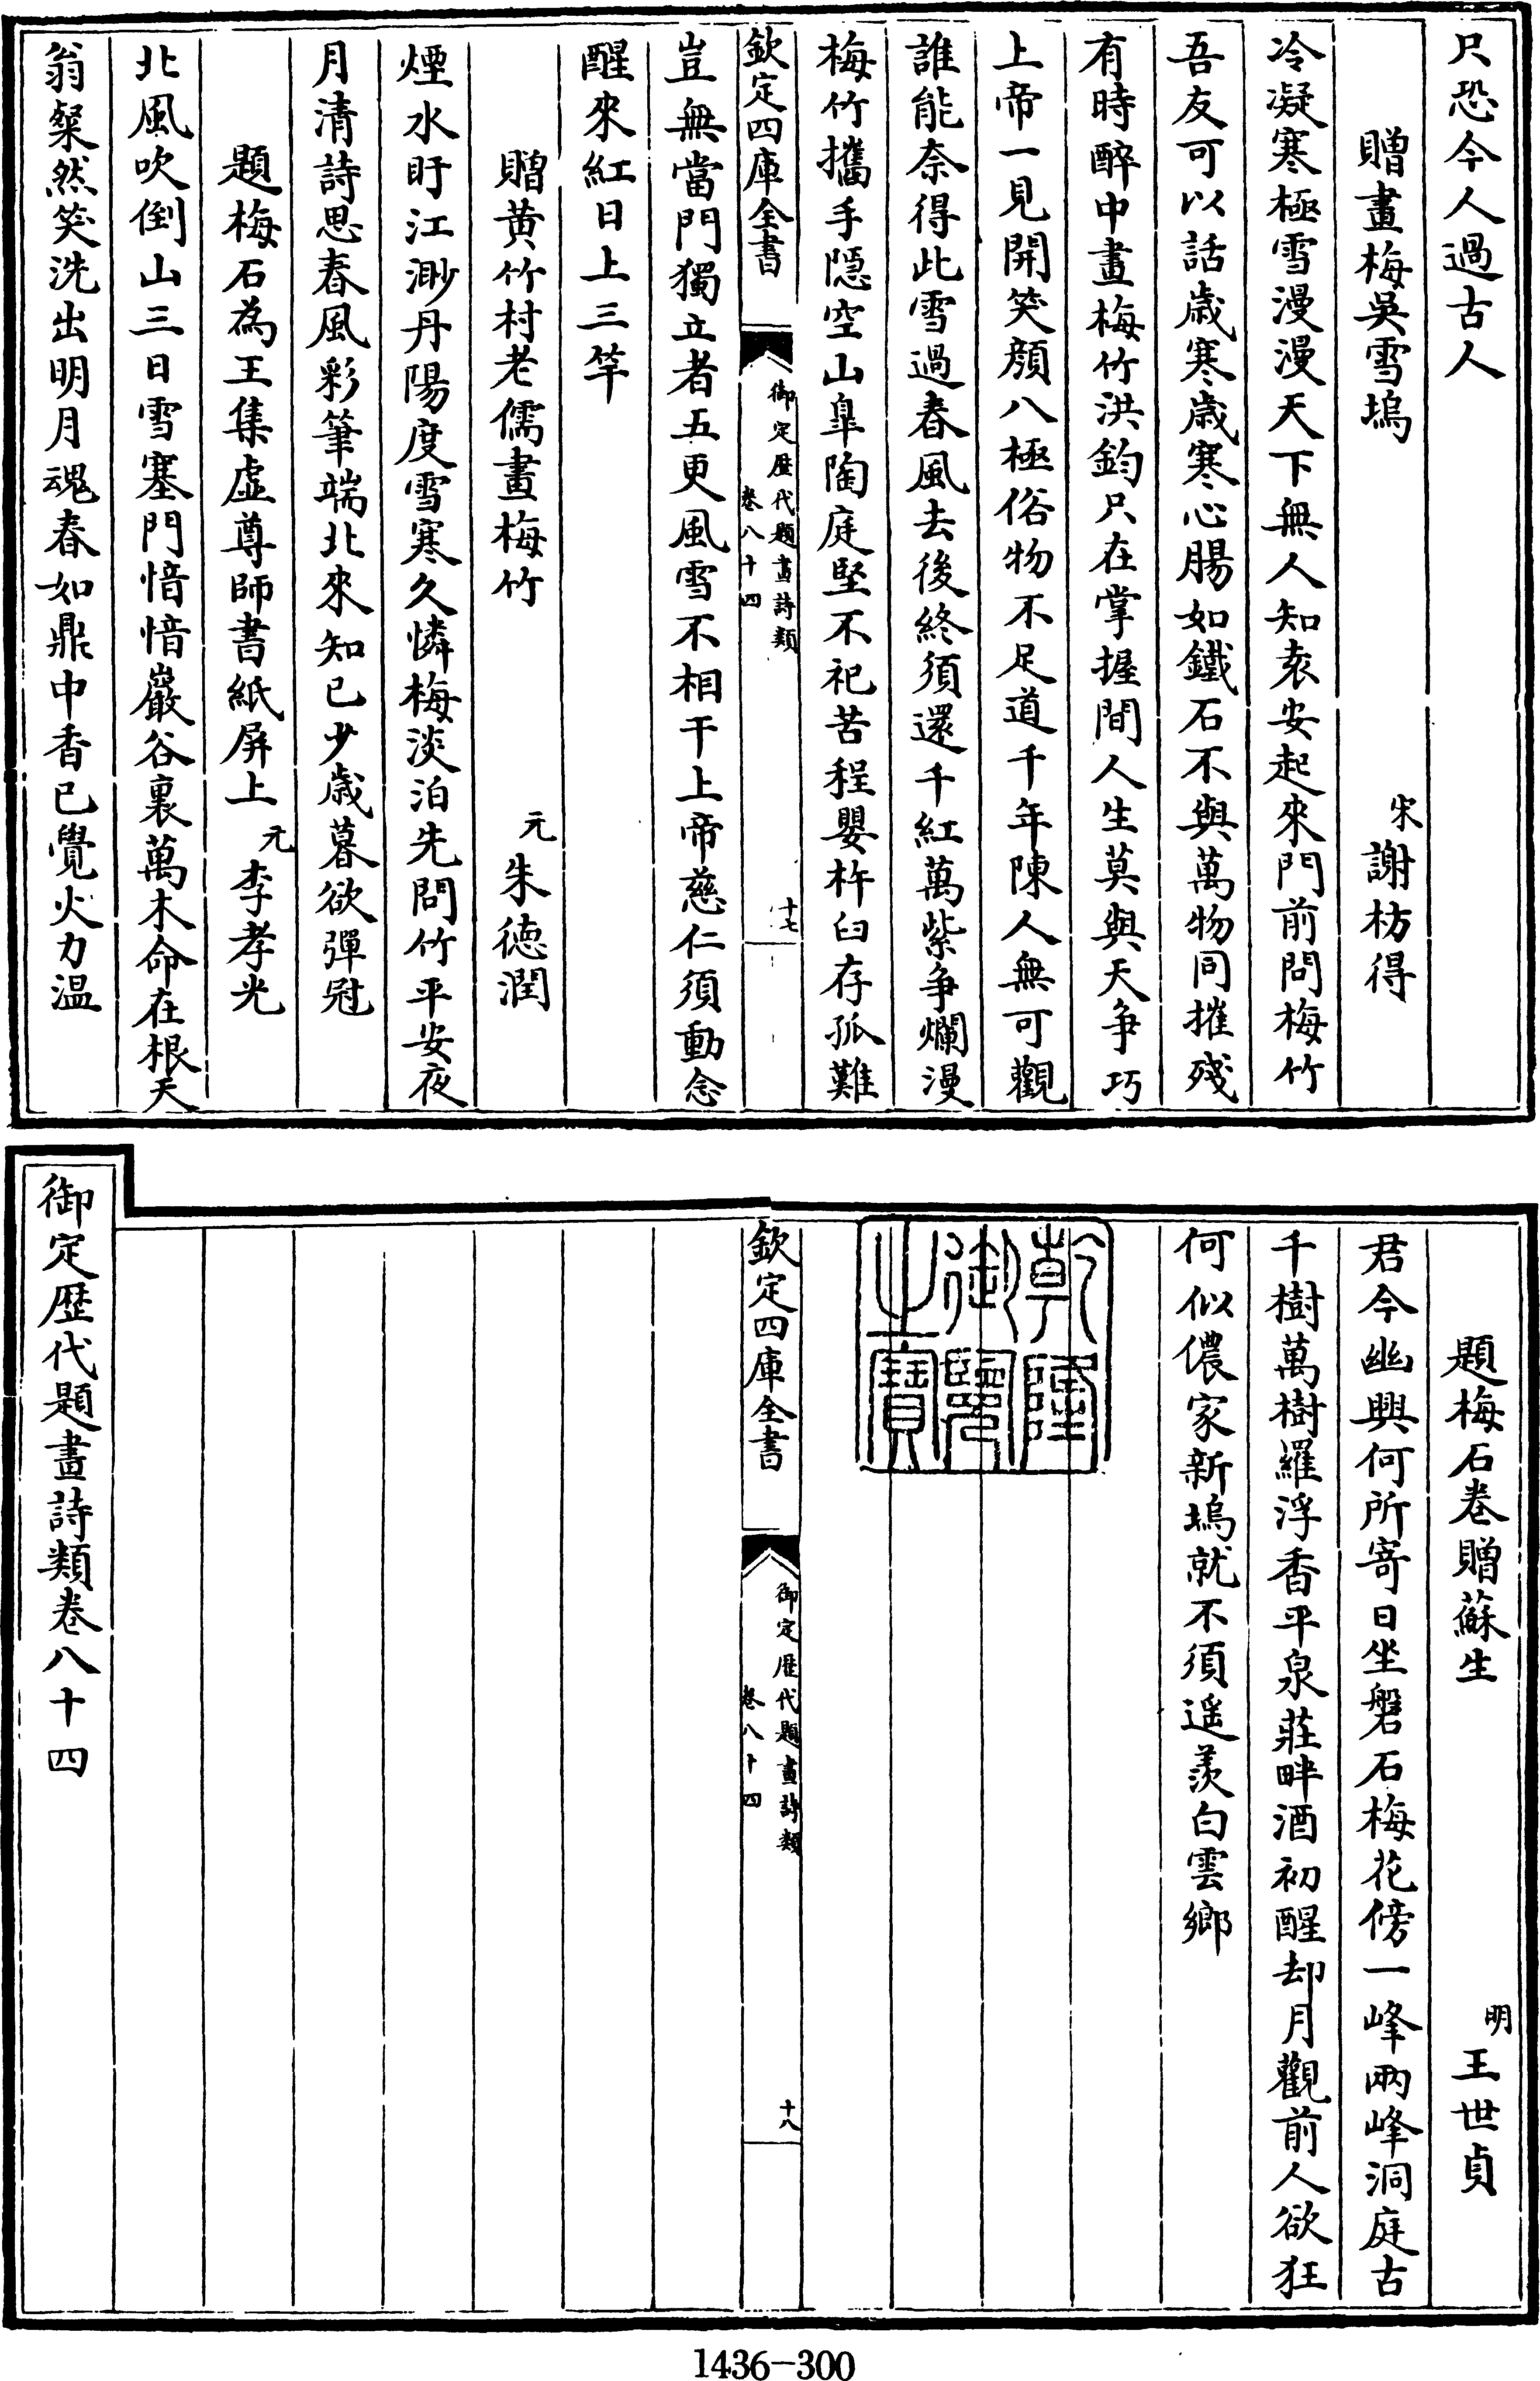 只恐今人過古人
贈畫梅吳雪塢
宋謝枋得
冷凝寒極雪漫漫天下無人知袁安起來門前問梅竹
吾友可以話歲寒歲寒心腸如鐵石不與萬物同摧殘
有時醉中畫梅竹洪鈞只在掌握間人生莫與天爭巧
上帝一見開笑顏八極俗物不足道千年陳人無可觀
誰能奈得此雪過春風去後終須還千紅萬紫爭爛漫
梅竹攜手隱空山臯陶庭堅不祀苦程嬰杵臼存孤難
欽定四庫全書
御定歷代題畫詩類
卷八十四
十七
豈無當門獨立者五更風雪不相干上帝慈仁須動念
醒來紅日上三竿
贈黄竹村老儒畫梅竹
元朱德潤
煙水盱江渺丹陽度雪寒久憐梅淡泊先問竹平安夜
月清詩思春風彩筆端北來知已少歲暮欲彈冠
題梅石為王集虛尊師書紙屏上
元李孝光
北風吹倒山三日雪塞門愔愔巖谷裏萬木命在根天
翁粲然笑洗出明月魂春如鼎中香已覺火力温
題梅石卷贈蘇生
明王世貞
君今幽興何所寄日坐磐石梅花傍一峰兩峰洞庭古
千樹萬樹羅浮香平泉莊畔酒初醒却月觀前人欲狂
何似儂家新塢就不須遥羨白雲鄉
乾隆
御覽
之寶
欽定四庫全書
御定歷代題畫詩類
卷八十四
十八
御定歷代題畫詩類卷八十四
1436-300